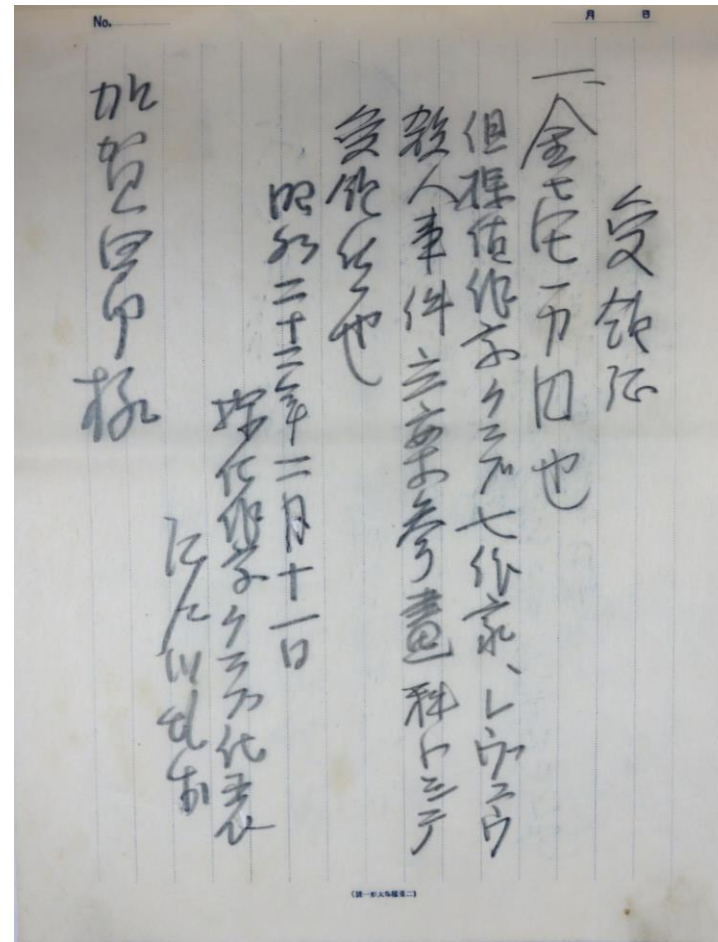 No.
月 日
受領証
一、金壱万円也
但探偵作家クラブ七作家、レヴュウ
殺人事件立案参畫料トシテ
受領候也
昭和二十三年二月十一日
探偵作家クラブ代表
江戸川乱歩
加賀四郎様